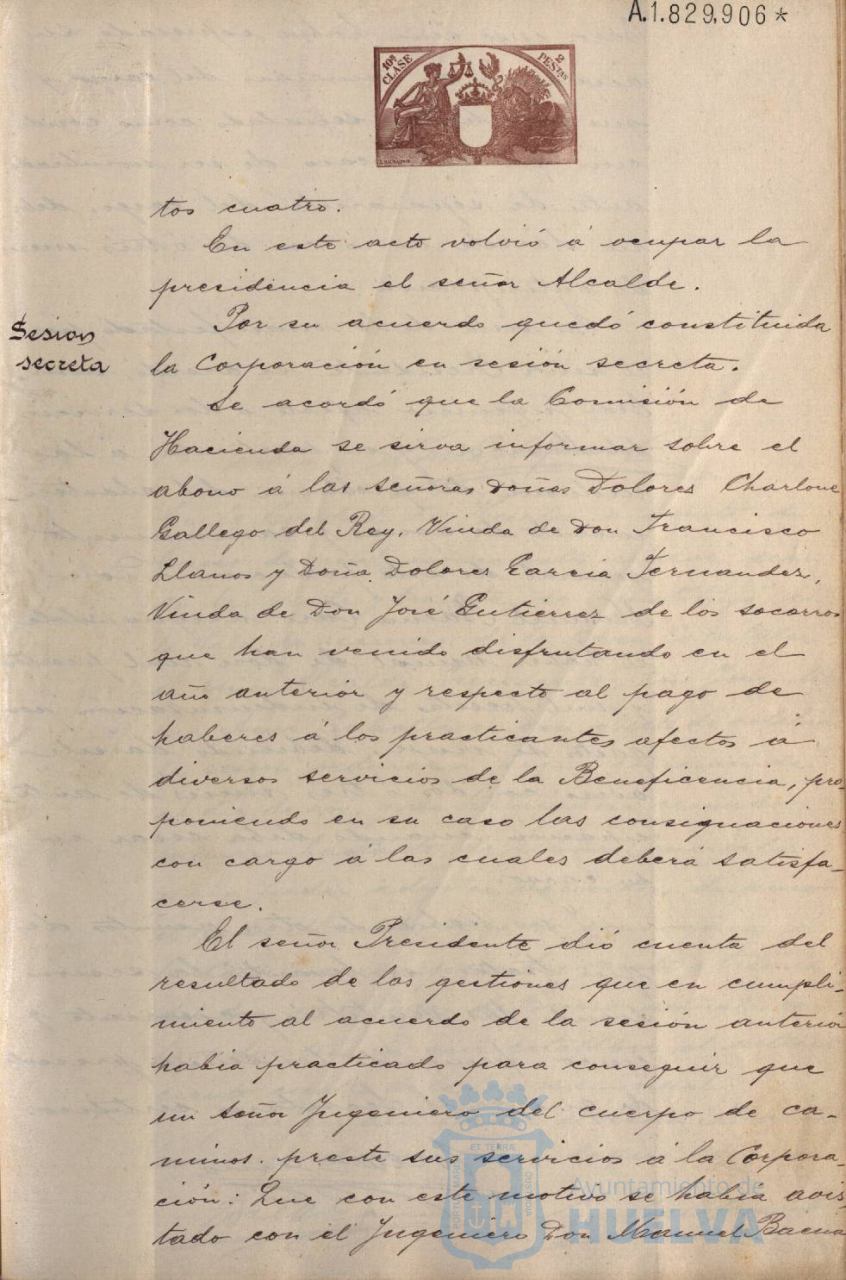 A.1.829,906*
10ª CLASE
2 PESTAS
tos cuatro.
En este acto volvió á ocupar la
presidencia el señor Alcalde.
Sesion
secreta
Por su acuerdo quedó constituida
la Corporación en sesión secreta.
Se acordó que la Comisión de
Hacienda se sirva informar sobre el
abono á las señoras Doñas Dolores Charlone
Gallego del Rey, Viuda de Don Francisco
Llanos y Doña Dolores Garcia Fernandez,
Viuda de Don José Gutiérrez de los socorros
que han venido disfrutando en el
año anterior y respecto al pago de
haberes á los practicantes afectos á
diversos servicios de la Beneficencia, pro-
poniendo en su caso las consignaciones
con cargo á las cuales deberá satisfa-
cerse.
El señor Presidente dió cuenta del
resultado de las gestiones que en cumpli-
miento al acuerdo de la sesión anterior
habia practicado para conseguir que
un señor Ingeniero del cuerpo de ca-
minos. preste sus servicios á la Corpora-
ción: Que con este motivo se habia avis-
tado con el Ingeniero Don Manuel Baena
Ayuntamiento de
HUELVA